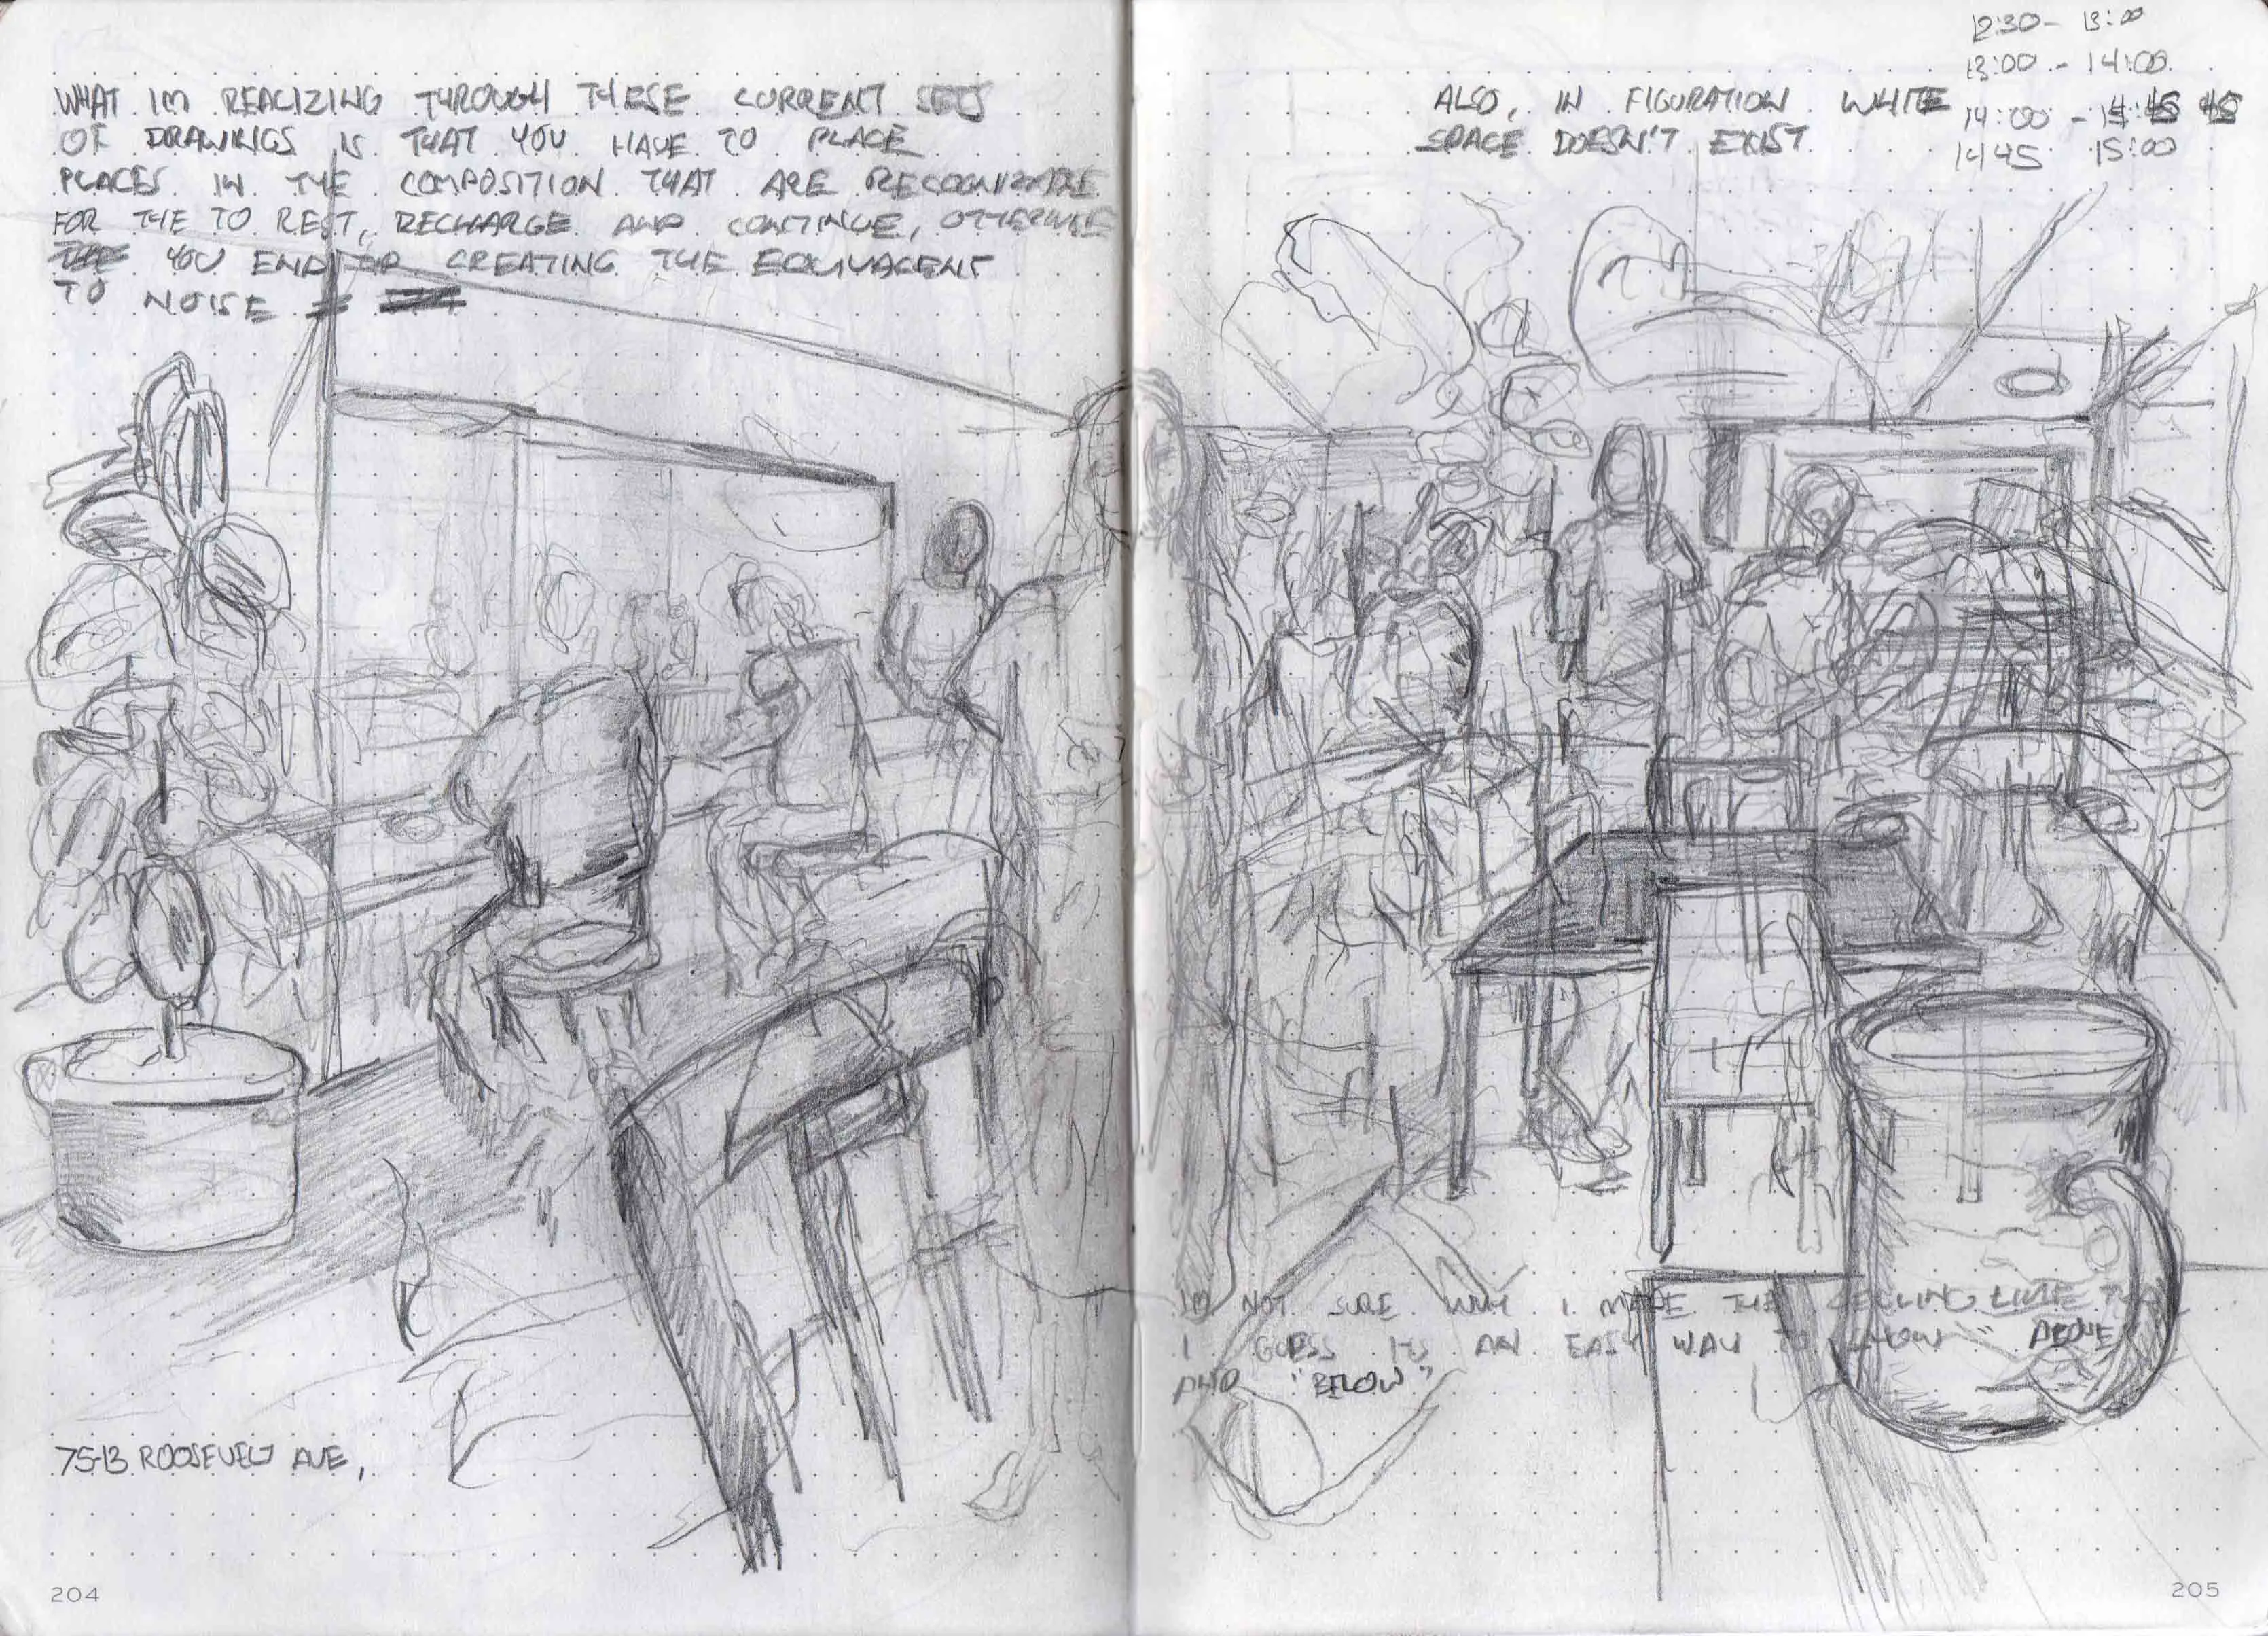 WHAT IM REALIZING THROUGH THESE CURRENT SETS
OF DRAWINGS IS THAT YOU HAVE TO PLACE
PLACES IN THE COMPOSITION THAT ARE RECOGNIZABLE
FOR THE TO REST, RECHARGE AND CONTINUE, OTHERWISE
YOU END UP CREATING THE EQUIVALENT
TO NOISE
75-13 ROOSEVELT AVE,
204
12:30 - 13:00
13:00 - 14:00
14:00 - 45
1445 15:00
ALSO, IN FIGURATION WHITE
SPACE DOESN'T EXIST
IM NOT SURE WHY I MADE THE CEILING LINE
I GUESS ITS AN EASY WAY TO SHOW "ABOVE"
AND "BELOW"
205